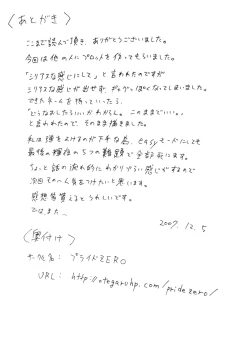 〈あとがき〉
ここまで読んで頂き、ありがとうございました。
今回は他の人にプロットを作ってもらいました。
「シリアスな感じにして」と言われたのですが
シリアスな感じが出せず、ギャグっぽくなってしまいました。
できたネームを持っていったら、
「どうなおしたらいいかわからん。このままでいい。」
と言われたので、そのまま描きました。
私は弾をよけるのが下手な為、Easyモードにしても
最後の輝夜の5つの難題で全部死にます。
ちょっと話の流れ的にわかりづらい感じがするので
次回その辺気をつけたいと思います。
感想等貰えるとうれしいです。
ではまた
2007. 12. 5
〈奥付け〉
サークル名： プライドZERO
URL： http://otegaruhp.com/pridezero/